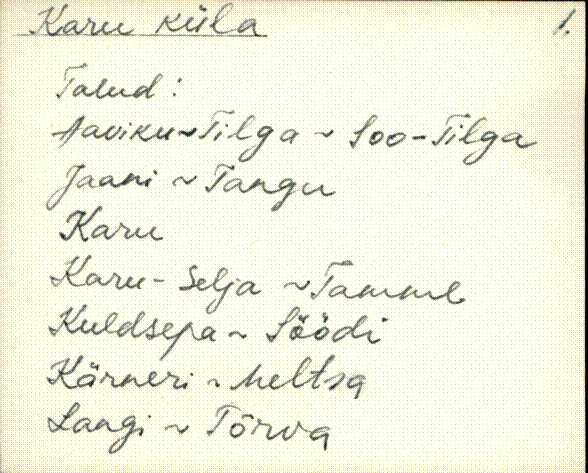 Karu küla 1.
Talud:
Aaviku ~ Tilga ~ Soo-Tilga
Jaani ~ Tangu
Karu
Karu-Selja ~ Tamme
Kuldsepa ~ Söödi
Kärneri ~ Meltsa
Langi ~ Tõrva